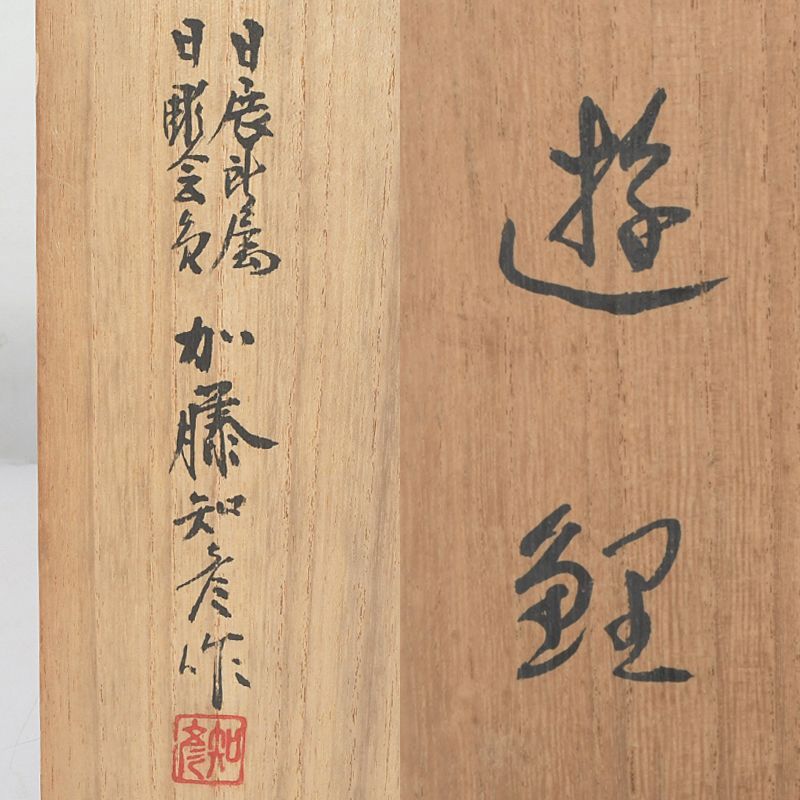 遊鯉
日展所属
日彫会員
加藤知彦作
知彦